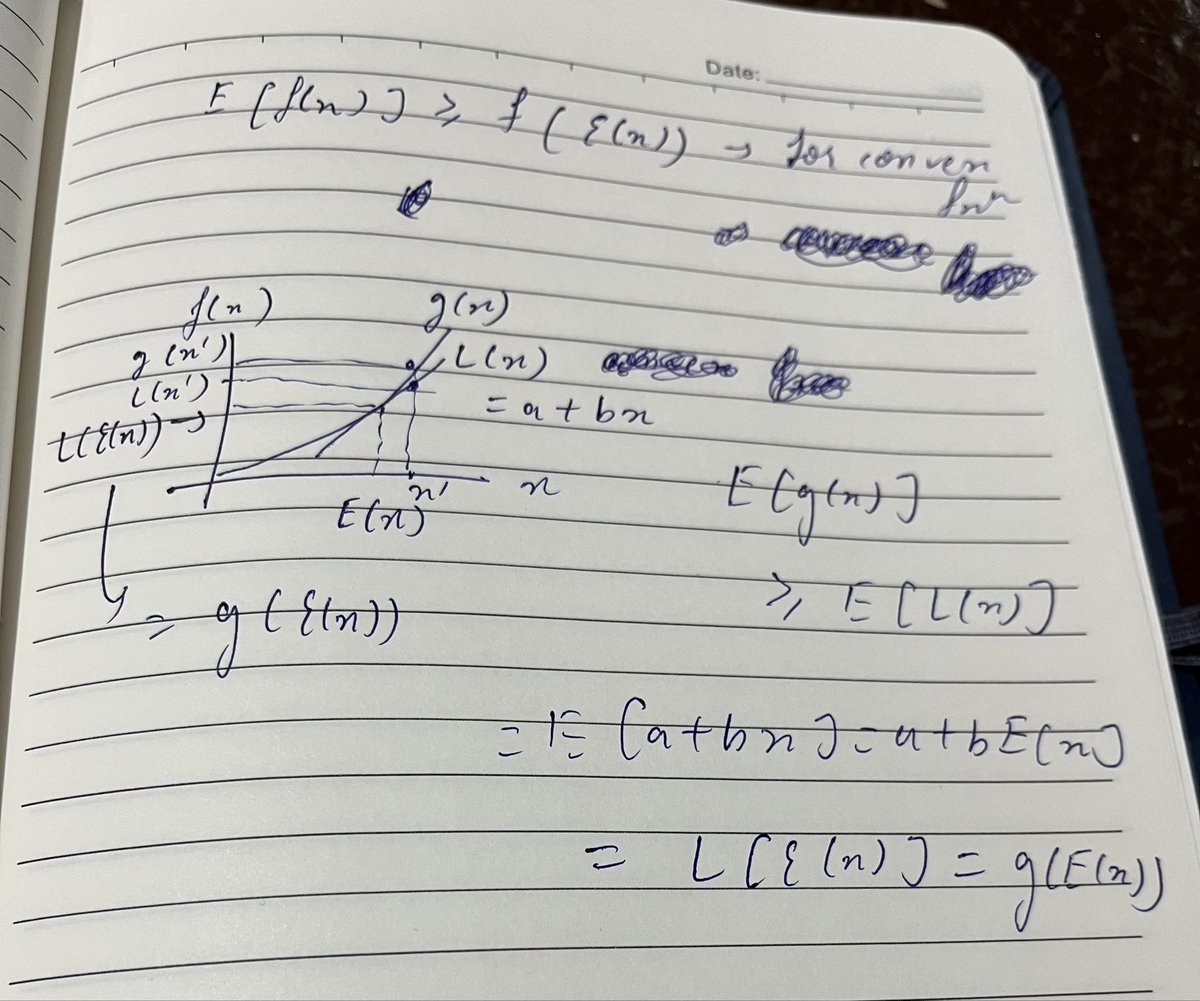 Date:
E[f(x)] ≥ f(E(x)) → for convex
fnⁿ
f(x)
g(x)
g(x')
L(x')
L(x)
= a + bx
L(E(x)) →
x'
x
E(x)
E[g(x)]
= g(E(x))
≥ E[L(x)]
= E[a+bx] = a+bE[x]
= L[E(x)] = g(E(x))